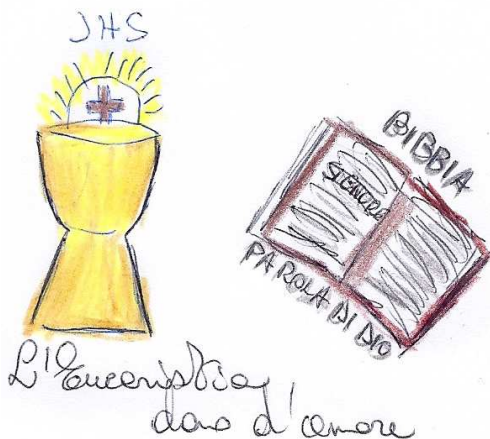 JHS
BIBBIA
SIGNORE
PAROLA DI DIO
L'Eucaristia,
dono d'amore